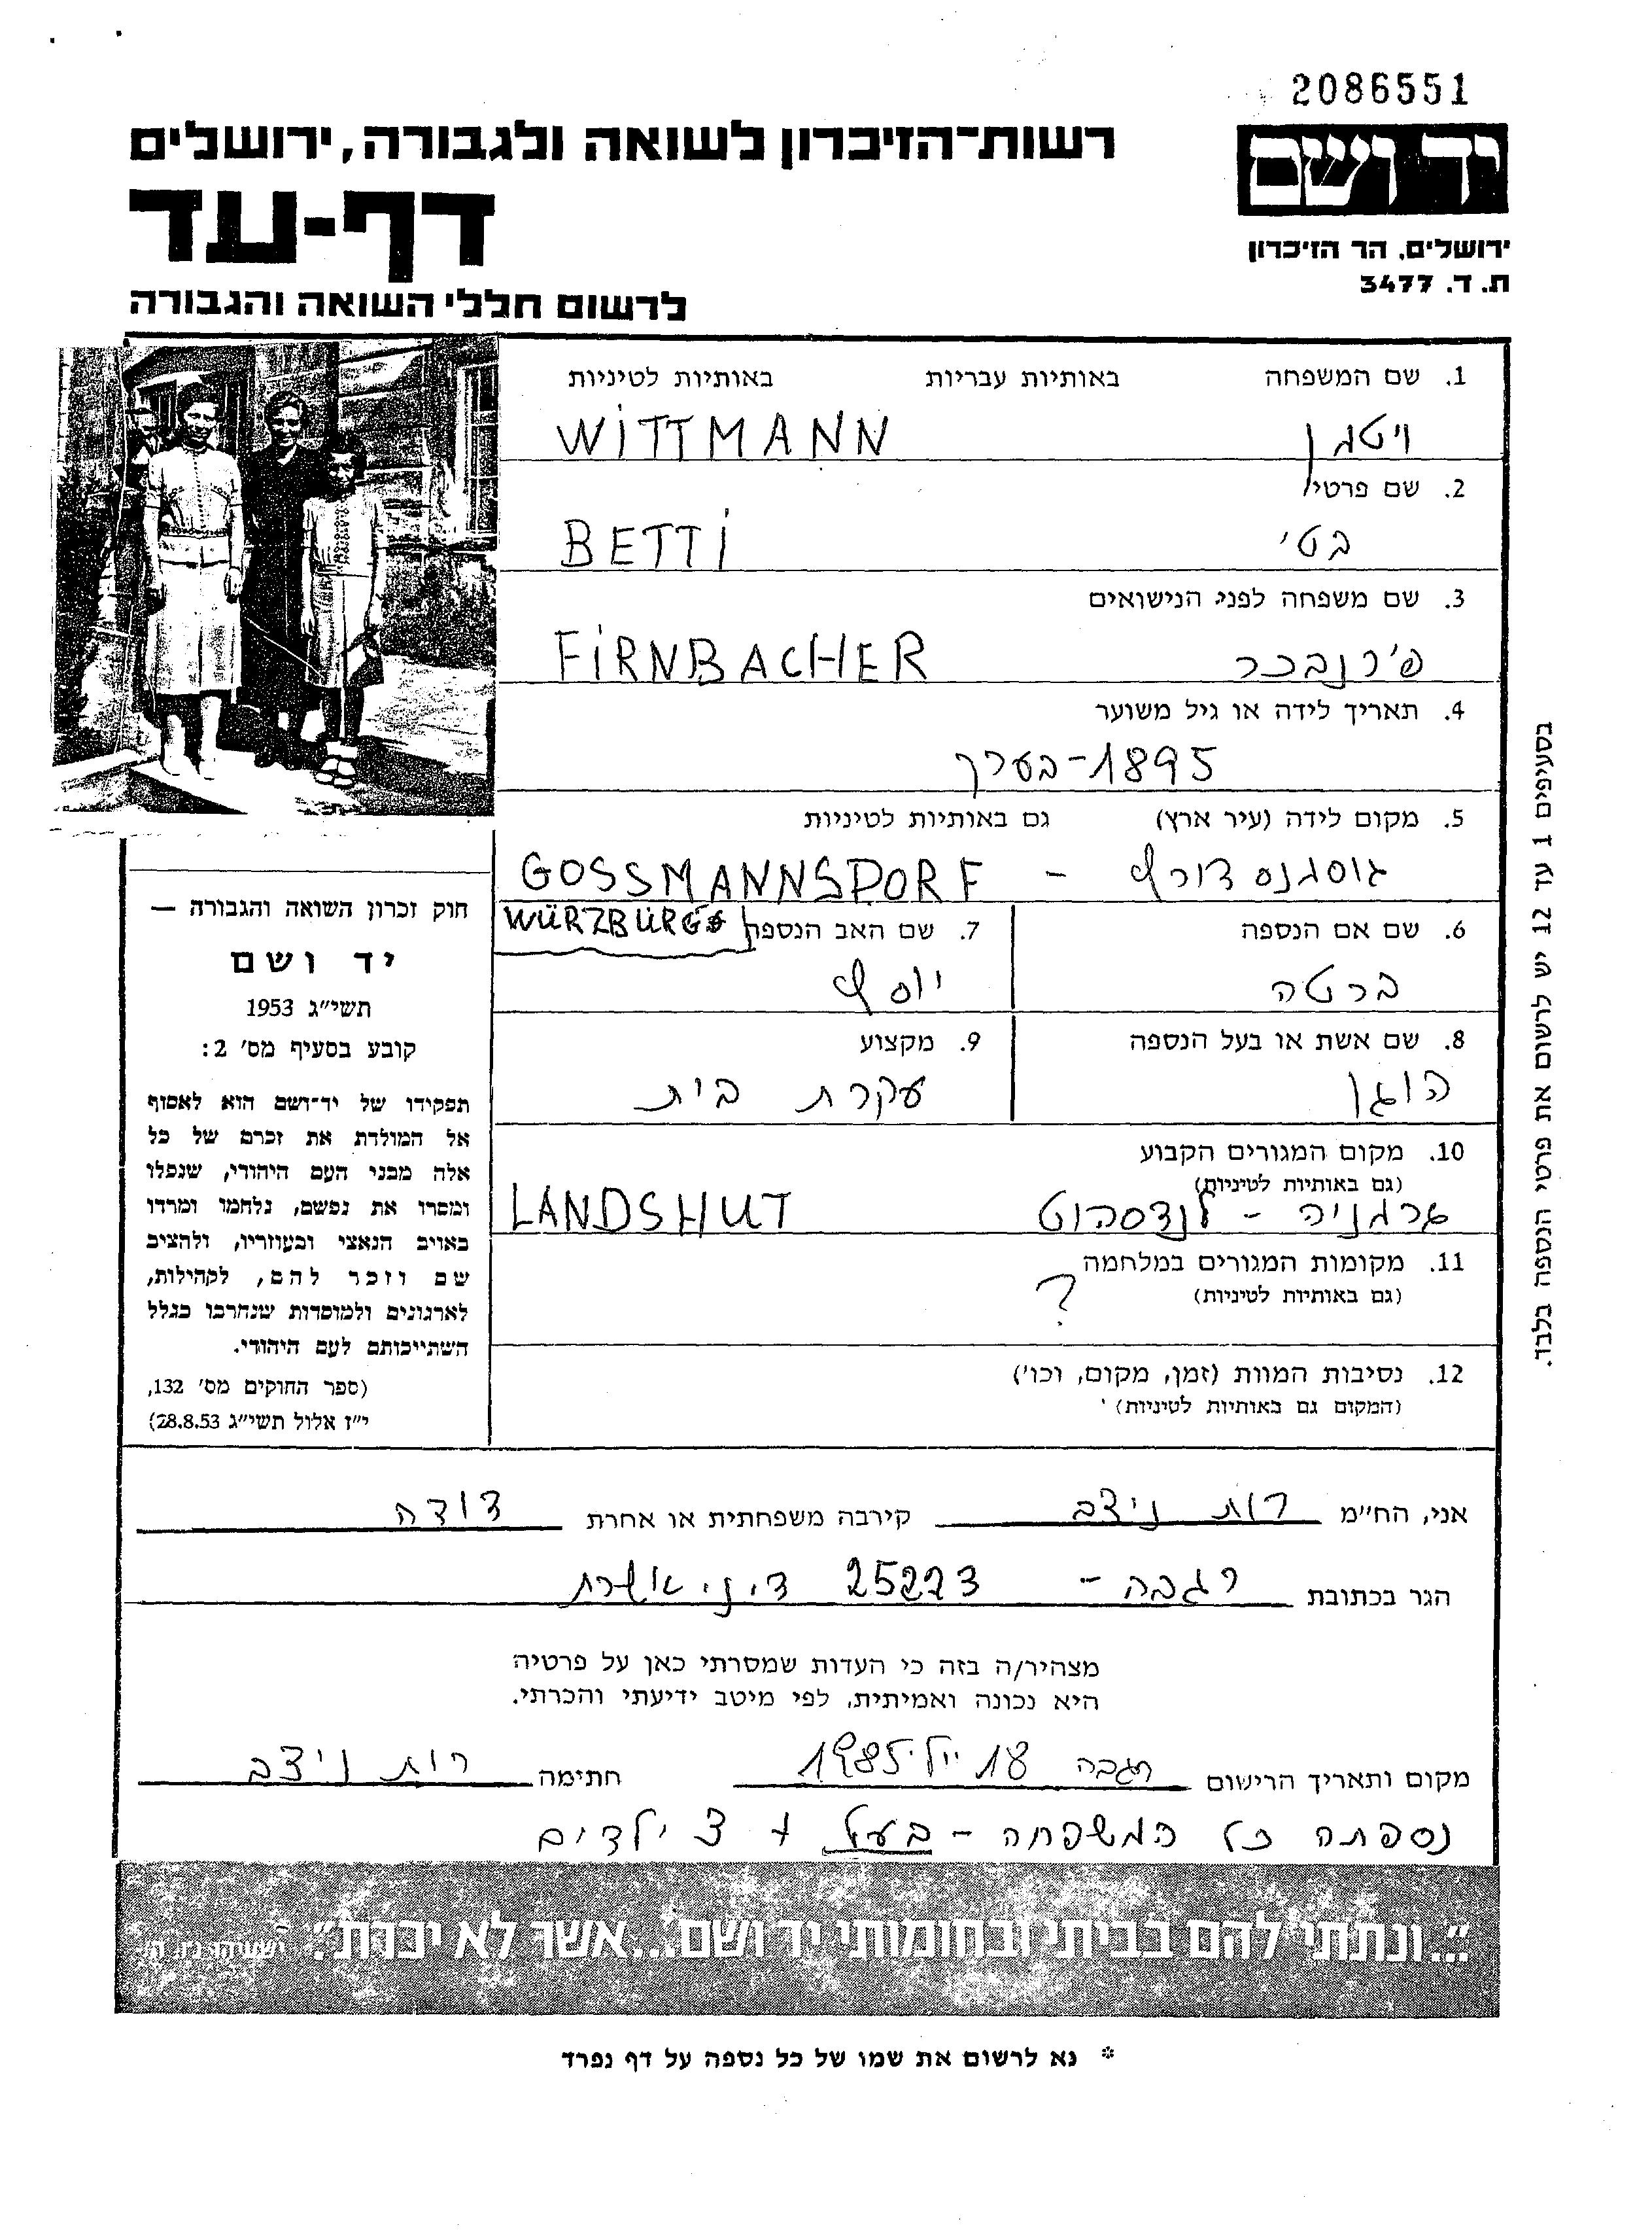 2086551
רשות־הזיכרון לשואה ולגבורה, ירושלים
יד ושם
דף-עד
ירושלים, הר הזיכרון
ת. ד. 3477
לרשום חללי השואה והגבורה
1. שם המשפחה באותיות עבריות באותיות לטיניות
ויטמן WITTMANN
2. שם פרטי
בטי BETTI
3. שם משפחה לפני הנישואים
פירנבכר FIRNBACHER
4. תאריך לידה או גיל משוער
1895-בערך
5. מקום לידה (עיר ארץ) גם באותיות לטיניות
גוסמנסדורף - GOSSMANNSDORF
WÜRZBURG
6. שם אם הנספה 7. שם האב הנספה
ברטה יוסף
8. שם אשת או בעל הנספה 9. מקצוע
הוגן עקרת בית
10. מקום המגורים הקבוע
(גם באותיות לטיניות)
גרמניה - לנדסהוט LANDSHUT
11. מקומות המגורים במלחמה
(גם באותיות לטיניות)
?
12. נסיבות המוות (זמן, מקום, וכו')
(המקום גם באותיות לטיניות)
חוק זכרון השואה והגבורה —
יד ושם
תשי"ג 1953
קובע בסעיף מס' 2:
תפקידו של יד־ושם הוא לאסוף
אל המולדת את זכרם של כל
אלה מבני העם היהודי, שנפלו
ומסרו את נפשם, נלחמו ומרדו
באויב הנאצי ובעוזריו, ולהציב
שם וזכר להם, לקהילות,
לארגונים ולמוסדות שנחרבו בגלל
השתייכותם לעם היהודי.
(ספר החוקים מס' 132,
י"ז אלול תשי"ג 28.8.53)
בסעיפים 1 עד 12 יש לרשום את פרטי הנספה בלבד.
אני, הח"מ רות ניצב קירבה משפחתית או אחרת דודה
הגר בכתובת רגבה - 25223 ד.נ. אשרת
מצהיר/ה בזה כי העדות שמסרתי כאן על פרטיה
היא נכונה ואמיתית, לפי מיטב ידיעתי והכרתי.
מקום ותאריך הרישום רגבה 18 יולי 1985 חתימה רות ניצב
נספתה כל המשפחה - בעל + 3 ילדים
"...ונתתי להם בביתי ובחומותי יד ושם...אשר לא יכרת". ישעיהו נו, ה
* נא לרשום את שמו של כל נספה על דף נפרד